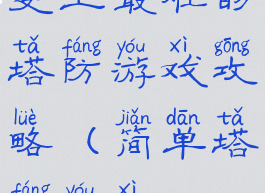 史上最难的
tǎ fáng yóu xì gōng
塔防游戏攻
lüè jiǎn dān tǎ
略（简单塔
fáng yóu xì